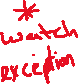 *
watch
exception